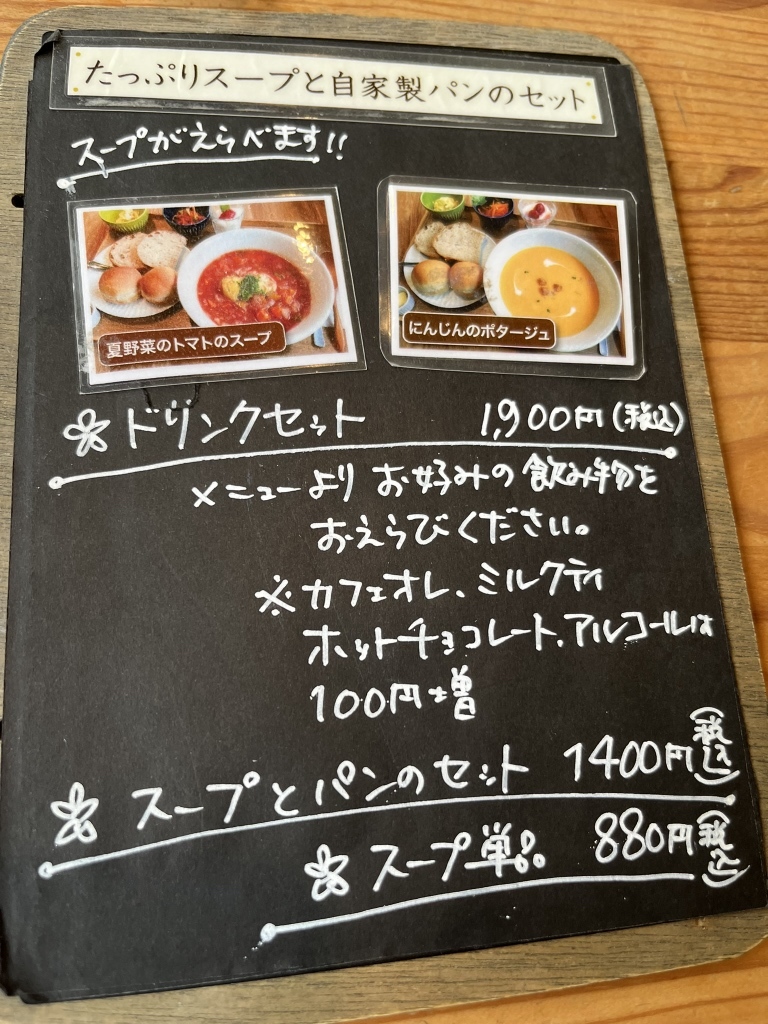 たっぷりスープと自家製パンのセット
スープがえらべます!!
夏野菜のトマトのスープ
にんじんのポタージュ
ドリンクセット 1,900円(税込)
メニューより お好みの飲み物を
おえらびください。
※カフェオレ、ミルクティ
ホットチョコレート、アルコールは
100円増
スープとパンのセット 1400円(税込)
スープ単品 880円(税込)